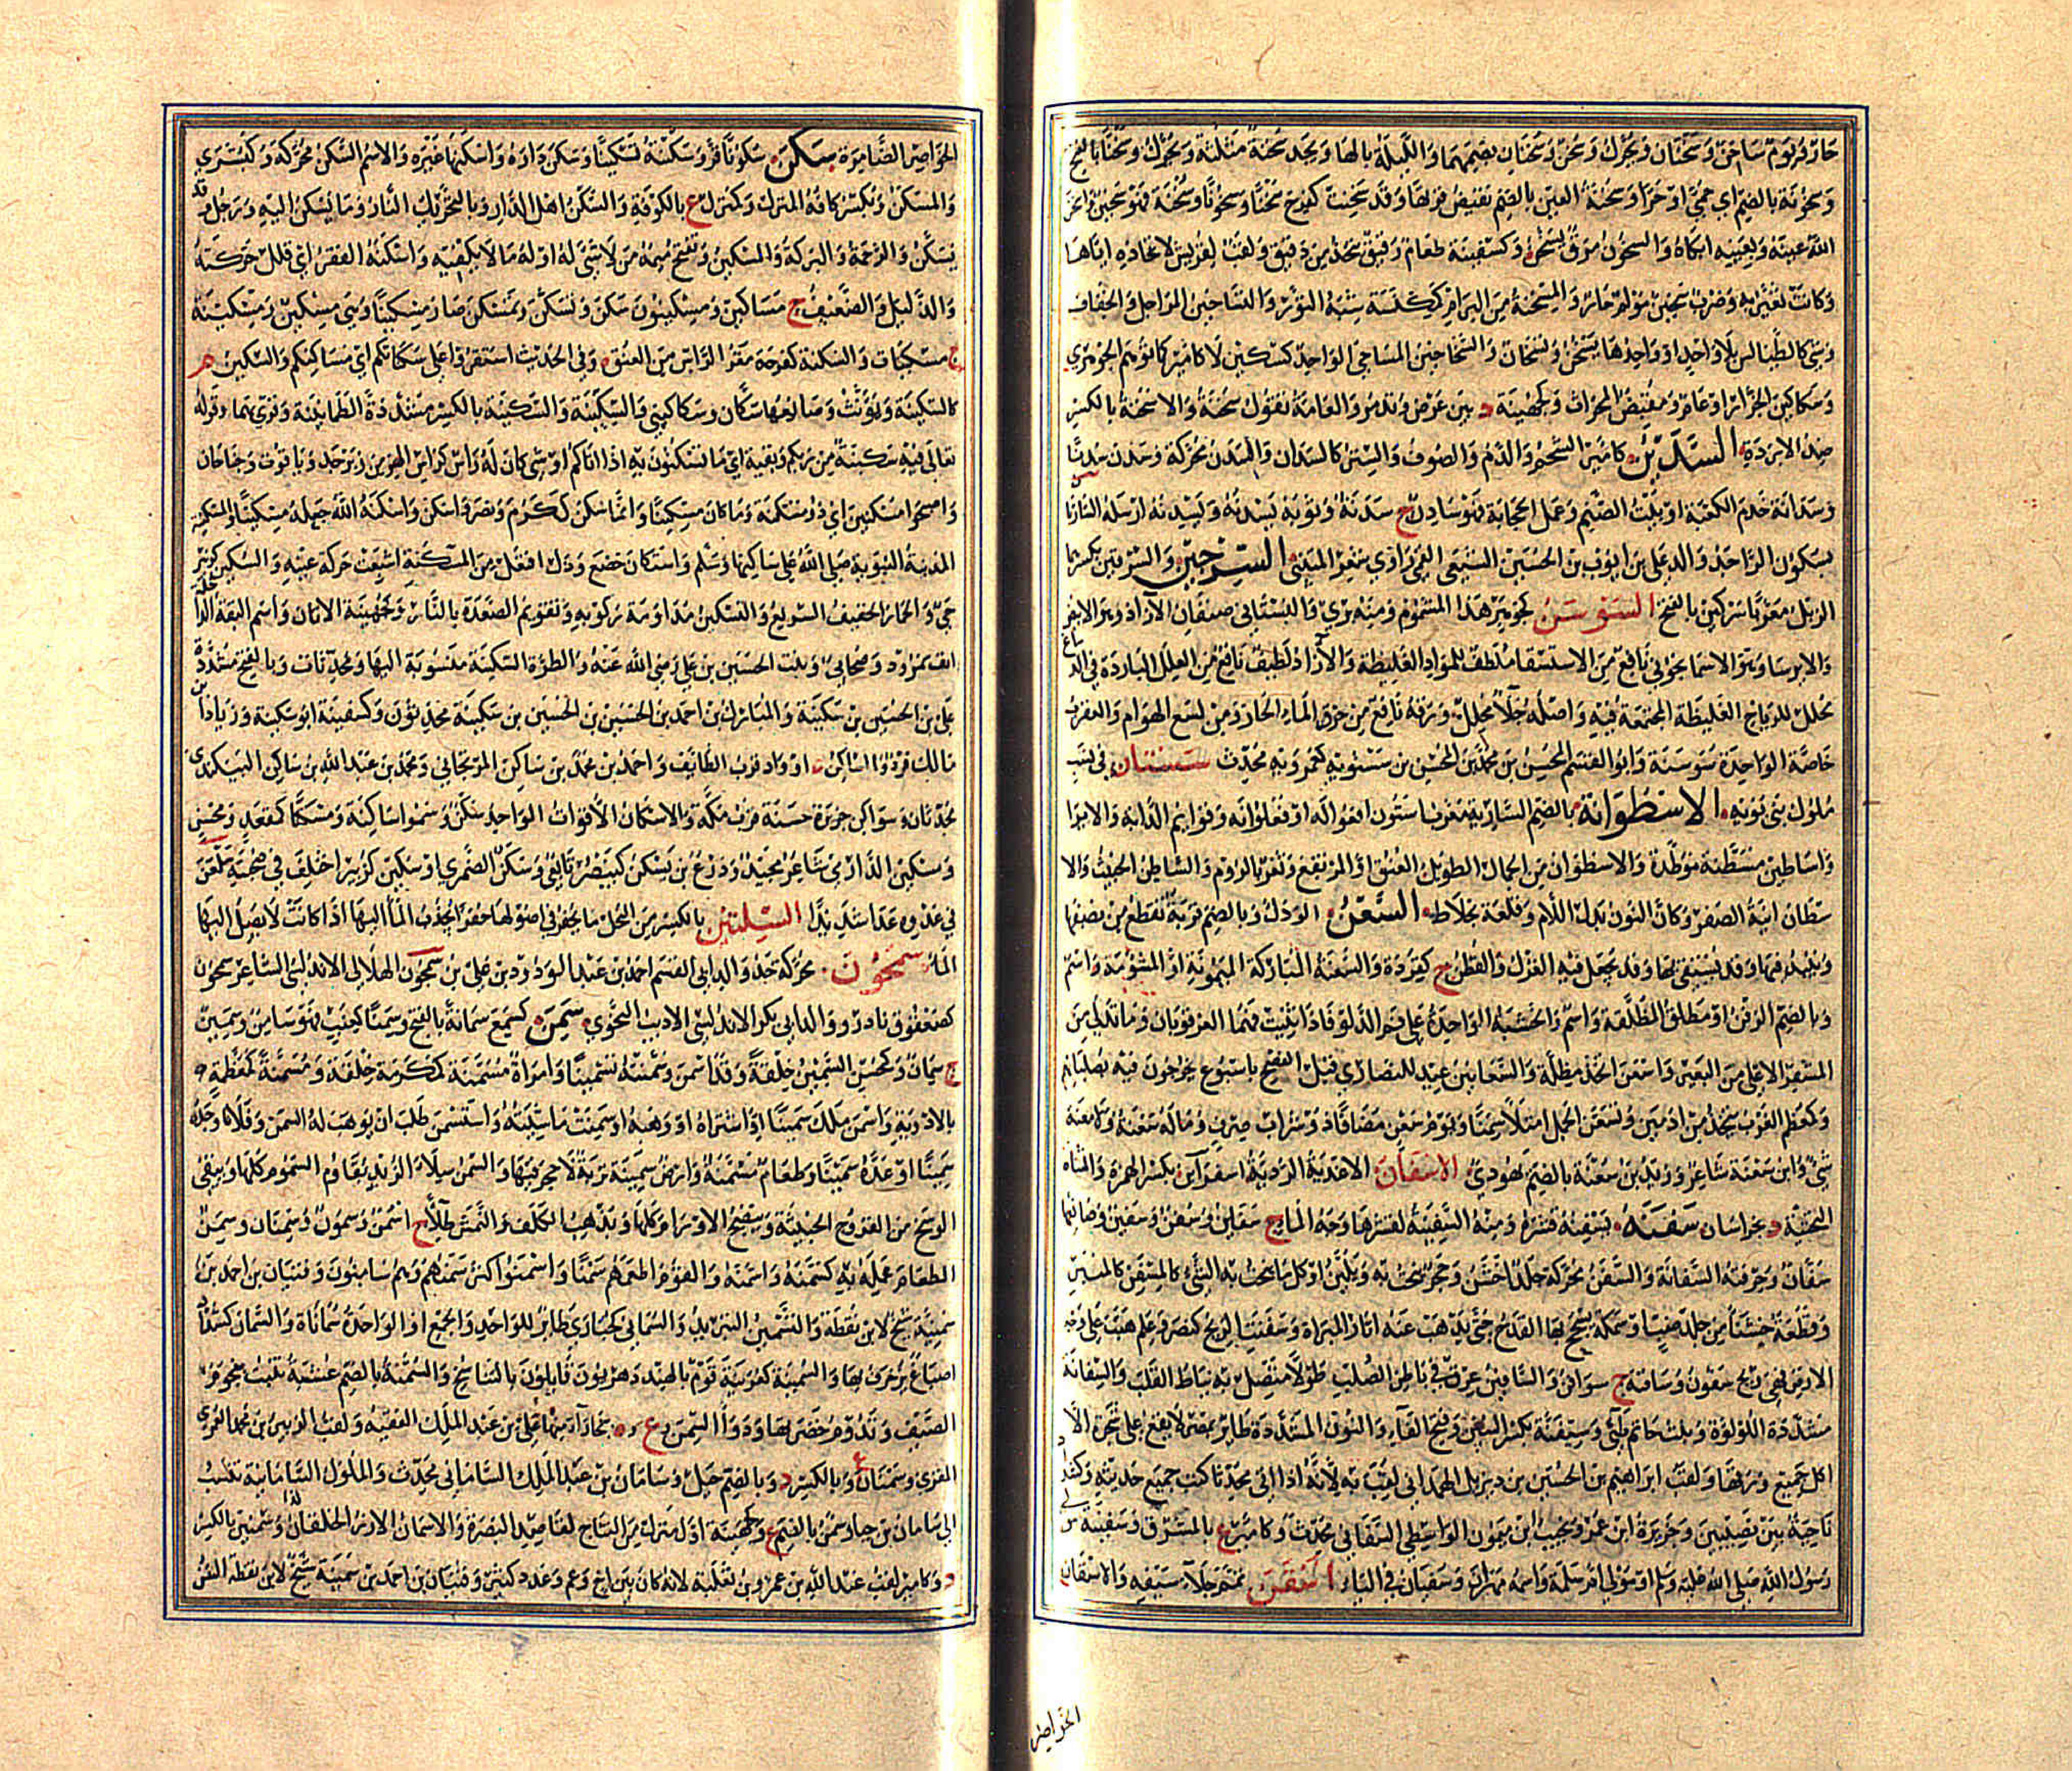 حارّ ويوم ساخن وسخنان ويحرك وسخن وسخنان بضمهما والليلة بالهاء ويجد سخنة مثلثة ويحرك وسخنا بالفتح
وسخونة بالضم اي حمى او حرا وسخنة العين بالضم نقيض قرتها وقد سخنت كفرح سخنا وسخونا وسخنة فهو سخين واسخن
الله عينه وبعينه ابكاه والسخون مرق يسخن وكسفينة طعام رقيق يتخذ من دقيق ولقب لقريش لاتخاذهم اياها
وكانت تعير به وضرب سخين مؤلم حار والمسخنة من البرام كمكنسة شبه التور والتساخين المراجل والخفاف
وشي كالطيالس بلا واحد او واحدها تسخن وتسخان والسخاخين المساحي الواحد كسكين لا كامير كما توهم الجوهري
وسكاكين الجزار او عام ومقبض المحراث وكجهينة د بين عرض وتدمر والعامة تقول سخنة والاسخنة بالكسر
ضد الابردة السدين كامير الشحم والدم والصوف والستر كالسدان والسدن محركة وسدن سدنا
وسدانة خدم الكعبة او بيت الصنم وعمل الحجابة فهو سادن ج سدنة وثوبه يسدنه ويسدنه ارسله الساذنا
بسكون الواحد والد علي بن ايوب بن الحسين السرجين والسرقين بكسرهما
الزبل معربا سركين بالفتح السوسن كجوهر هذا المشموم ومنه بري والبستاني صنفان الآزاد وهو الابيض
والايرسا وهو الاسمانجوني نافع من الاستسقا ملطف للمواد الغليظة والآزاد لطيف نافع من العلل الباردة في الدماغ
محلل للرياح الغليظة المجتمعة فيه واصله جلا محلل وورقه نافع من حرق الماء الحار ومن لسع الهوام والعقرب
خاصة الواحدة سوسنة وابو القسم الحسين بن محمد بن الحسن بن سسنويه كعمرويه محدث سسنان في نسب
ملوك بني بويه الاسطوانة بالضم السارية معرب استون افعوالة او فعلوانة وقوايم الدابة والاير
واساطين مسطنة موطدة والاسطوان من الجمال الطويل العنق او المرتفع وثغر بالروم والساطن الخبيث والا
سطان انية الصفر وكان النون بدل اللام وقلعة بخلاط السعن الودك وبالضم قربة تقطع من نصفها
وينبذ فيها وقد يستقي بها وقد يجعل فيه الغزل والقطن ج كقردة والسعنة المباركة الميمونة او المشؤمة واسم
وبالضم القرن او مطلق الظلمة واسم والخشبة الواحدة على فم الدلو فاذا ثنيت فهما العرقوتان وما تدلى من
المشفر الاعلى من البعير واسعن اتخذ مظلة والسعانين عيد للنصارى قبل الفصح باسبوع يخرجون فيه بصلبانهم
وكمعظم الغرب يتخذ من اديمين وتسعن الجمل امتلا سمنا ويوم سعن مضافا ذو شراب صرف وما له سعنة ولا معنة
شيء وابن سعنة شاعر وزيد بن سعنة بالضم يهودي الاسفان الاغدية الردية اسفرآئن بكسر الهمزة والمثناة
التحتية د بخراسان سفنه يسفنه قشره ومنه السفينة لقشرها وجه الماء ج سفاين وسفن وسفين وصانعها
سفان وحرفته السفانة والسفن محركة جلد اخشن وحجر ينحت به ويلين او كل ما ينحت به الشيء كالمسفن كالمنبر
وقطعة خشنآء من جلد ضب او سمكة يسحج بها القدح حتى يذهب عنه اثار المبراة وسفنت الريح كنصر وعلم هبت على وجه
الارض فهي ريح سفون وسافنة ج سوافن والسافين عرق في باطن الصلب طولا متصل به نياط القلب والسفانة
مشددة اللؤلؤة وبنت حاتم طيء وسيفنة بكسر السين وفتح الفآء والنون المشددة طائر بمصر لا يقع على شجرة الا
اكل جميع ورقها ولقب ابراهيم بن الحسين بن ديزيل الهمداني لقب به لانه اذا اتى محدثا كتب جميع حديثه وكشداد
ناحية بين نصيبين وجزيرة ابن عمر ونجيب ابن ميمون الواسطي السفاني محدث وكامير ع بالمشرق وسفينة من
رسول الله صلى الله عليه وسلم او مولى ام سلمة واسمه مهران وسفيان في الياء اسقن تمم جلآء سيفه والاسقان
الخواصر
الخواصر الضامرة سكن سكونا قر وسكنته تسكينا وسكن داره واسكنها غيره والاسم السكن محركة وكبشرى
والمسكن وتكسر كافه المنزل وكمنزل ع بالكوفة والسكن اهل الدار وبالتحريك النار وما يسكن اليه ورجل وقد
يسكن والرحمة والبركة والمسكين وتفتح ميمه من لا شي له او له ما لا يكفيه واسكنه الفقر اي قلل حركته
والذليل والضعيف ج مساكين ومسكينون وسكن وتسكن وتمسكن صار مسكينا وهي مسكين ومسكينة
ج مسكينات والسكنة كفرحة مقر الراس من العنق وفي الحديث استقروا على سكناتكم اي مساكنكم والسكين م
كالسكينة ويؤنث وصانعها سكان وسكاكيني والسكينة والسكينة بالكسر مشددة الطمانينة وقرئ بهما وقوله
تعالى فيه سكينة من ربكم وبقية اي ما تسكنون به اذا اتاكم او هي شي كان له راس كراس الهر من زبرجد وياقوت وجناحان
واصبحوا مسكنين اي ذوي مسكنة وما كان مسكينا وانما سكن ككرم ونصر واسكن واسكنه الله جعله مسكينا والمسكينة
المدينة النبوية صلى الله على ساكنها وسلم واستكان خضع وذل افتعل من المسكنة اشبعت حركة عينه والسكين كزبير
حي والحمار الخفيف السريع والتسكين مداومة ركوبه وتقويم الصعدة بالنار وكجهينة الاتان واسم البقة الداخلة
انف نمرود وصحابي وبنت الحسين بن علي رضي الله عنه والطرة السكينية منسوبة اليها ومحدثات وبالفتح مشددة
علي بن الحسين بن سكينة والمبارك بن احمد بن الحسين بن الحسين بن سكينة محدثون وكسفينة ابو سكينة وزياد بن
مالك فرد والساكن ة او واد قرب الطائف واحمد بن محمد بن ساكن الزنجاني ومحمد بن عبد الله بن ساكن البيكندي
محدثان وسواكن جزيرة حسنة قرب مكة والاسكان الاقوات الواحد سكن وسموا ساكنة ومسكنا كمقعد ومحسن
وسكين الدارمي شاعر مجيد ودرع بن يسكن كينصر تابعي وسكن الضمري او سكين كزبير اختلف في صحبته
السلتين بالكسر من النخل ما يحفر في اصولها حفر الجذب الماء اليها اذا كانت لا يصل اليها
الماء سمجون محركة جد والد ابي القسم احمد بن عبد الودود بن علي بن سمجون الهلالي الاندلسي الشاعر سمحون
كصعفوق نادر ووالد ابي بكر الاندلسي الاديب النحوي سمن كسمع سمانة بالفتح وسمنا كعنب فهو سامن وسمين
ج سمان وكمحسن السمين خلقة وقد اسمن وسمنته تسمينا وامراة مسمنة كمكرمة خلقة ومسمنة كمعظمة
بالادوية واسمن ملك سمينا او اشتراه او وهبه او سمنت ماشيته واستسمن طلب ان يوهب له السمن وفلانا وجده
سمينا او عده سمينا وطعام مسمنة وارض سمينة تربة لا حجر فيها والسمن سلاء الزبد يقاوم السموم كلها وينقي
الوسخ من القروح الخبيثة وينضج الاورام كلها ويذهب الكلف والنمش طلآء ج اسمن وسمون وسمنان وسمن
الطعام عمله به كسمنه واسمنه والقوم اطعمهم سمنا واسمنوا كثر سمنهم وهم سامنون وفتيان بن احمد بن
سمينة شيخ لابن نقطة والتسمين التبريد والسماني كحبارى طاير للواحد والجميع او الواحدة سماناة والسمان كشداد
اصباغ يزخرف بها والسمنية كعرنية قوم بالهند دهريون قايلون بالتناسخ والسمنة بالضم عشبة تنبت بنجوم
الصيف وتدوم خضرتها ودواآ السمن وع وة ببخارآ منها علي بن عبد الملك الفقيه ولقب الزبير بن محمد العمري
المقري وسمنان ع وبالكسر د وبالضم جبل وسامان بن عبد الملك الساماني محدث والملوك السامانية تنسب
الى سامان بن حيا وسمن بالضم ع وكجهينة اول منزل من النباج لقاصد البصرة والاسمان الازر الخلقان وسمنين بالكسر
د وكامير لقب عبد الله بن عمرو بن ثعلبة لانه كان بين اخ وعم وعدد كثير وفتيان بن احمد بن سمينة شيخ لابن نقطة السن